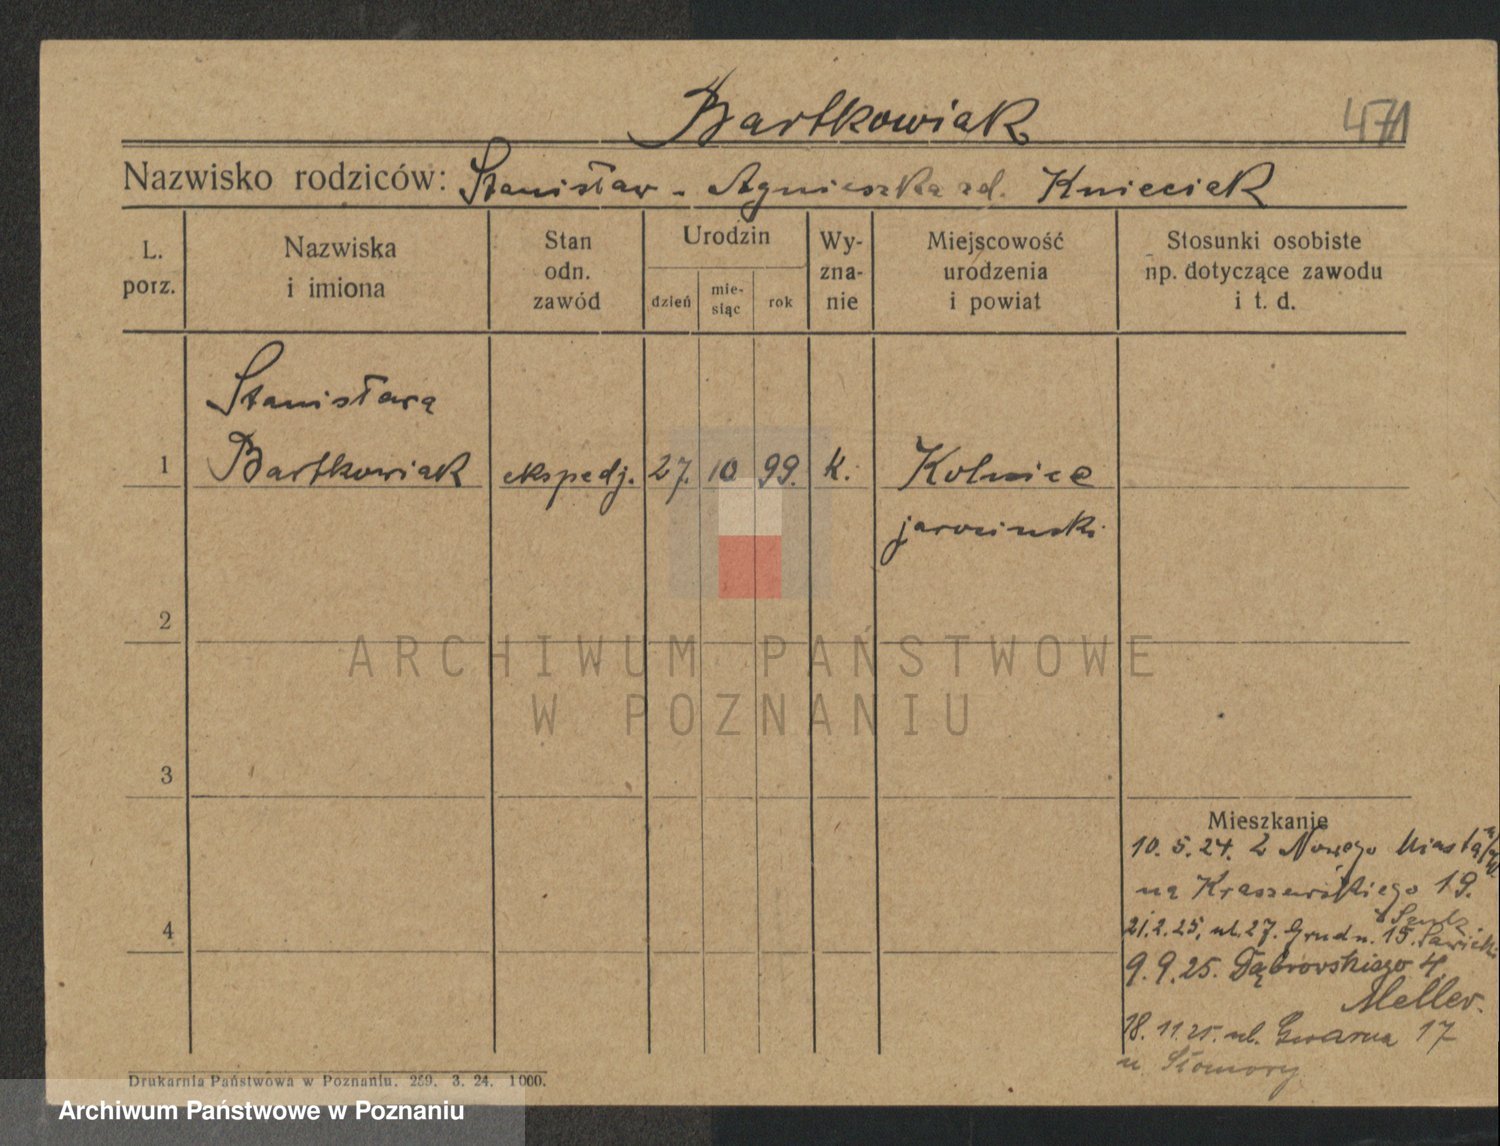 Bartkowiak
471
Nazwisko rodziców: Stanisław - Agnieszka zd. Knieciak
L. porz.
Nazwiska i imiona
Stan odn. zawód
Urodzin
dzień
mie- siąc
rok
Wy- zna- nie
Miejscowość urodzenia i powiat
Stosunki osobiste np. dotyczące zawodu i t. d.
Stanisława
1 Bartkowiak ekspedj. 27. 10 99. k. Kolnice
jarocinski
2
ARCHIWUM PAŃSTWOWE
W POZNANIU
3
Mieszkanie
10. 5. 24. z Nowego Miasta
na Kraszewskiego 19.
4
21. 2. 25, ul. 27. Grudn. 15.
9. 9. 25. Dąbrowskiego 4.
Meller.
18. 11. 25. ul. Gwarna 17
u Słomory
Drukarnia Państwowa w Poznaniu. 259. 3. 24. 1000.
Archiwum Państwowe w Poznaniu